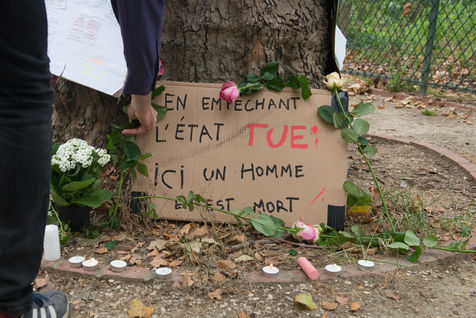 EN EMPÊCHANT
L'ÉTAT TUE!
ICI UN HOMME
EST MORT !